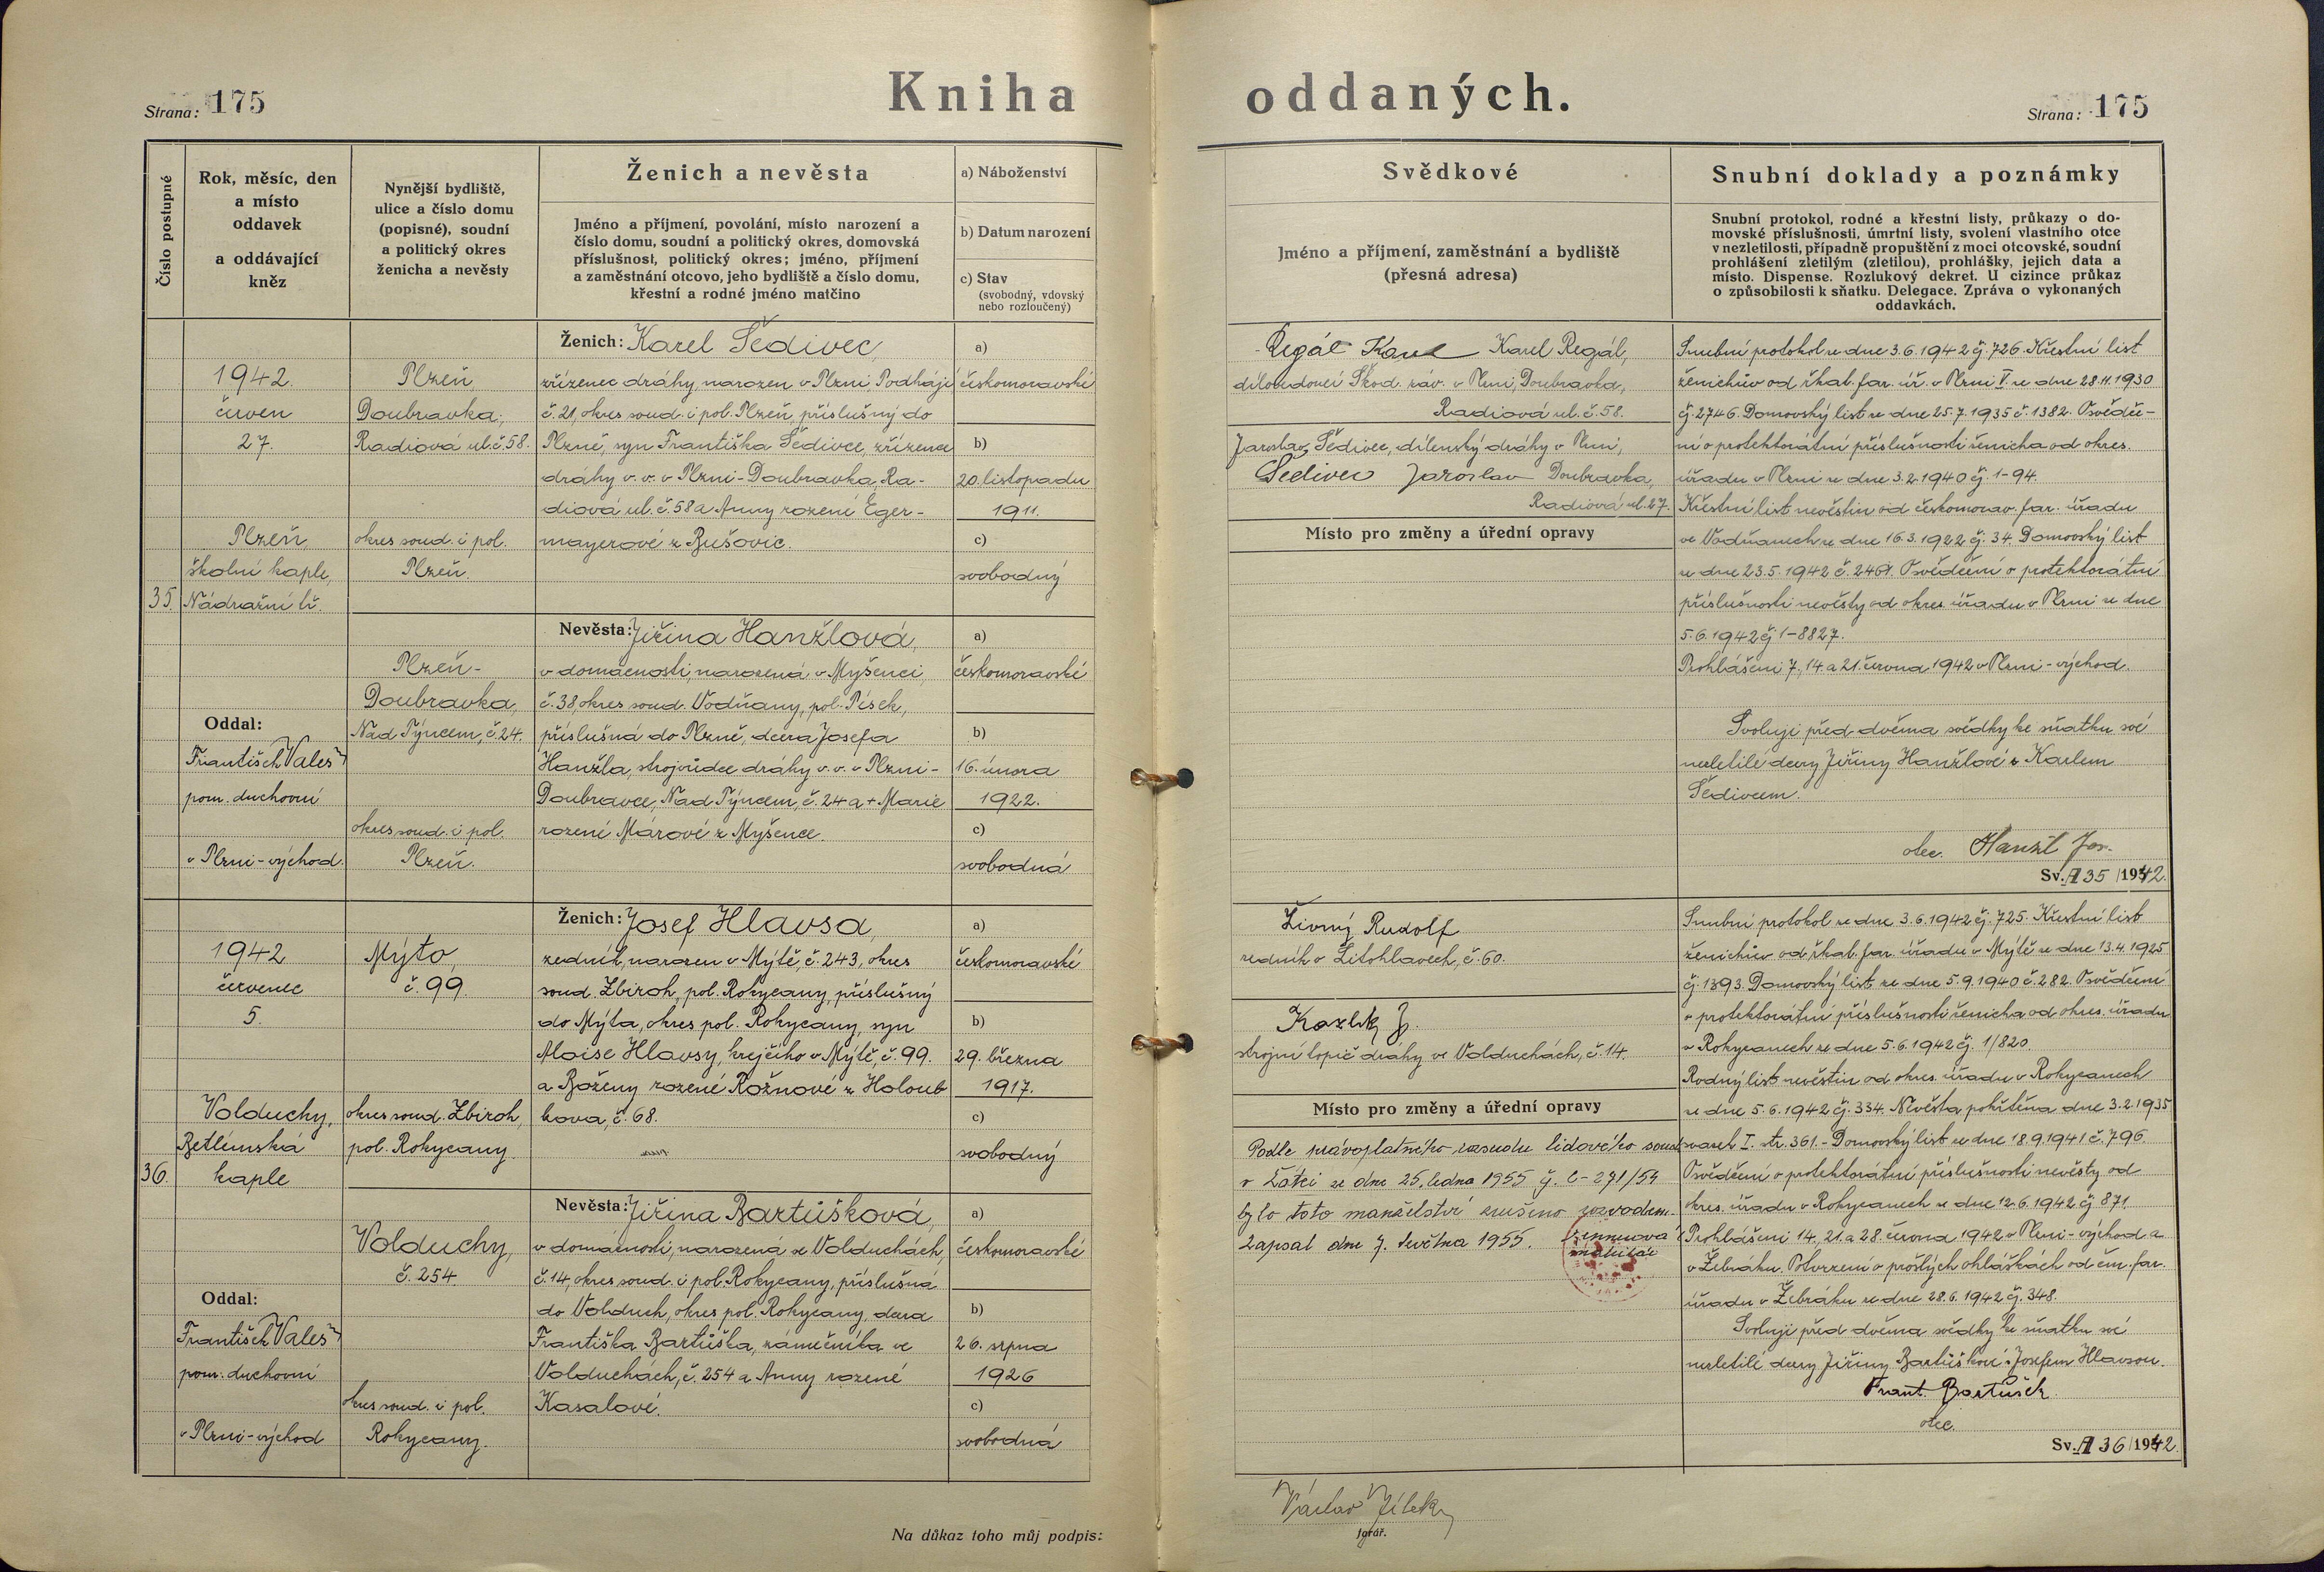 Kniha oddaných.
Strana: 175
Strana: 175
Číslo postupné
Rok, měsíc, den
a místo
oddavek
a oddávající
kněz
Nynější bydliště,
ulice a číslo domu
(popisné), soudní
a politický okres
ženicha a nevěsty
Ženich a nevěsta
Jméno a příjmení, povolání, místo narození a
číslo domu, soudní a politický okres, domovská
příslušnost, politický okres; jméno, příjmení
a zaměstnání otcovo, jeho bydliště a číslo domu,
křestní a rodné jméno matčino
a) Náboženství
b) Datum narození
c) Stav
(svobodný, vdovský
nebo rozloučený)
Svědkové
Jméno a příjmení, zaměstnání a bydliště
(přesná adresa)
Snubní doklady a poznámky
Snubní protokol, rodné a křestní listy, průkazy o do-
movské příslušnosti, úmrtní listy, svolení vlastního otce
v nezletilosti, případně propuštění z moci otcovské, soudní
prohlášení zletilým (zletilou), prohlášky, jejich data a
místo. Dispense. Rozlukový dekret. U cizince průkaz
o způsobilosti k sňatku. Delegace. Zpráva o vykonaných
oddavkách.
35.
1942.
červen
27.
Plzeň,
školní kaple,
Nádražní tř.
Oddal:
František Valeš
pom. duchovní
v Plzni-východ.
Plzeň
Doubravka,
Radiová ul. č. 58.
okres soud. i pol.
Plzeň.
Ženich: Karel Šedivec,
zřízenec dráhy, narozen v Plzni Podhájí
č. 21, okres soud. i pol. Plzeň, příslušný do
Plzně, syn Františka Šedivce, zřízence
dráhy v. v. v Plzni-Doubravka, Ra-
diová ul. č. 58 a Anny rozené Eger-
mayerové z Bušovic.
a)
českomoravské
b)
20. listopadu
1911.
c)
svobodný
Plzeň-
Doubravka,
Nad Týncem, č. 24.
okres soud. i pol.
Plzeň.
Nevěsta: Jiřina Hanžlová,
v domácnosti, narozená v Myšenci,
č. 38, okres soud. Vodňany, pol. Písek,
příslušná do Plzně, dcera Josefa
Hanžla, strojvůdce dráhy v. v. v Plzni-
Doubravce, Nad Týncem, č. 24 a + Marie
rozené Márové z Myšence.
a)
českomoravské
b)
16. února
1922.
c)
svobodná
Regál Karel Karel Regál,
dílovedoucí Škod. záv. v Plzni, Doubravka,
Radiová ul. č. 58.
Jaroslav Šedivec, dílenský dráhy v Plzni,
Šedivec Jaroslav Doubravka,
Radiová ul. 27.
Místo pro změny a úřední opravy
Snubní protokol ze dne 3.6.1942 čj. 726. Křestní list
ženichův od řkat. far. úř. v Plzni I. ze dne 28.11.1930
čj. 2746. Domovský list ze dne 25.7.1935 č. 1382. Osvědče-
ní o protektorátní příslušnosti ženicha od okres.
úřadu v Plzni ze dne 3.2.1940 čj. 1-94.
Křestní list nevěstin od českomorav. far. úřadu
ve Vodňanech ze dne 16.3.1922 čj. 34. Domovský list
ze dne 23.5.1942 č. 2461. Osvědčení o protektorátní
příslušnosti nevěsty od okres. úřadu v Plzni ze dne
5.6.1942 čj. 1-8827.
Prohlášeni 7., 14. a 21. června 1942 v Plzni-východ.
Svoluji před dvěma svědky ke sňatku své
nezletilé dcery Jiřiny Hanžlové s Karlem
Šedivcem.
otec. Hanžl Jos.
Sv. A 35 /1942.
36.
1942
červenec
5.
Volduchy,
Betlémská
kaple
Oddal:
František Valeš
pom. duchovní
v Plzni-východ
Mýto,
č. 99.
okres soud. Zbiroh,
pol. Rokycany.
Ženich: Josef Hlavsa,
zedník, narozen v Mýtě, č. 243, okres
soud. Zbiroh, pol. Rokycany, příslušný
do Mýta, okres pol. Rokycany, syn
Aloise Hlavsy, krejčího v Mýtě, č. 99.
a Boženy rozené Rožnové z Holoub
kova, č. 68.
a)
českomoravské
b)
29. března
1917.
c)
svobodný
Volduchy,
č. 254
okres soud. i pol.
Rokycany.
Nevěsta: Jiřina Bartůšková,
v domácnosti, narozená ve Volduchách,
č. 14, okres soud. i pol. Rokycany, příslušná
do Volduch, okres pol. Rokycany, dcera
Františka Bartůška, zámečníka ve
Volduchách, č. 254 a Anny rozené
Kasalové.
a)
českomoravské
b)
26. srpna
1926
c)
svobodná
Živný Rudolf
zedník v Litohlavech, č. 60.
J.
strojní topič dráhy ve Volduchách, č. 14.
Místo pro změny a úřední opravy
Podle právoplatného rozsudku lidového soudu
v Žatci ze dne 25. ledna 1955 čj. C-271/54
bylo toto manželství zrušeno rozvodem.
Zapsal dne 7. května 1955.
matrikář
Snubní protokol ze dne 3.6.1942 čj. 725. Křestní list
ženichův od řkat. far. úřadu v Mýtě ze dne 13.4.1925
čj. 1393. Domovský list ze dne 5.9.1940 č. 282. Osvědčení
o protektorátní příslušnosti ženicha od okres. úřadu
v Rokycanech ze dne 5.6.1942 čj. 1/820.
Rodný list nevěstin od okres. úřadu v Rokycanech
ze dne 5.6.1942 čj. 334. Nevěsta pokřtěna dne 3.2.1935
svazek I. str. 361.- Domovský list ze dne 18.9.1941 č. 796.
Osvědčení o protektorátní příslušnosti nevěsty od
okres. úřadu v Rokycanech ze dne 12.6.1942 čj. 871.
Prohlášeni 14., 21. a 28. června 1942 v Plzni-východ a
v Žebráku. Potvrzení o prošlých ohláškách od čm. far.
úřadu v Žebráku ze dne 28.6.1942 čj. 348.
Svoluji před dvěma svědky ke sňatku své
nezletilé dcery Jiřiny Bartůškové s Josefem Hlavsou.
Frant. Bartůšek
otec.
Sv. A 36 /1942.
Na důkaz toho můj podpis:
Václav Jílek
farář.